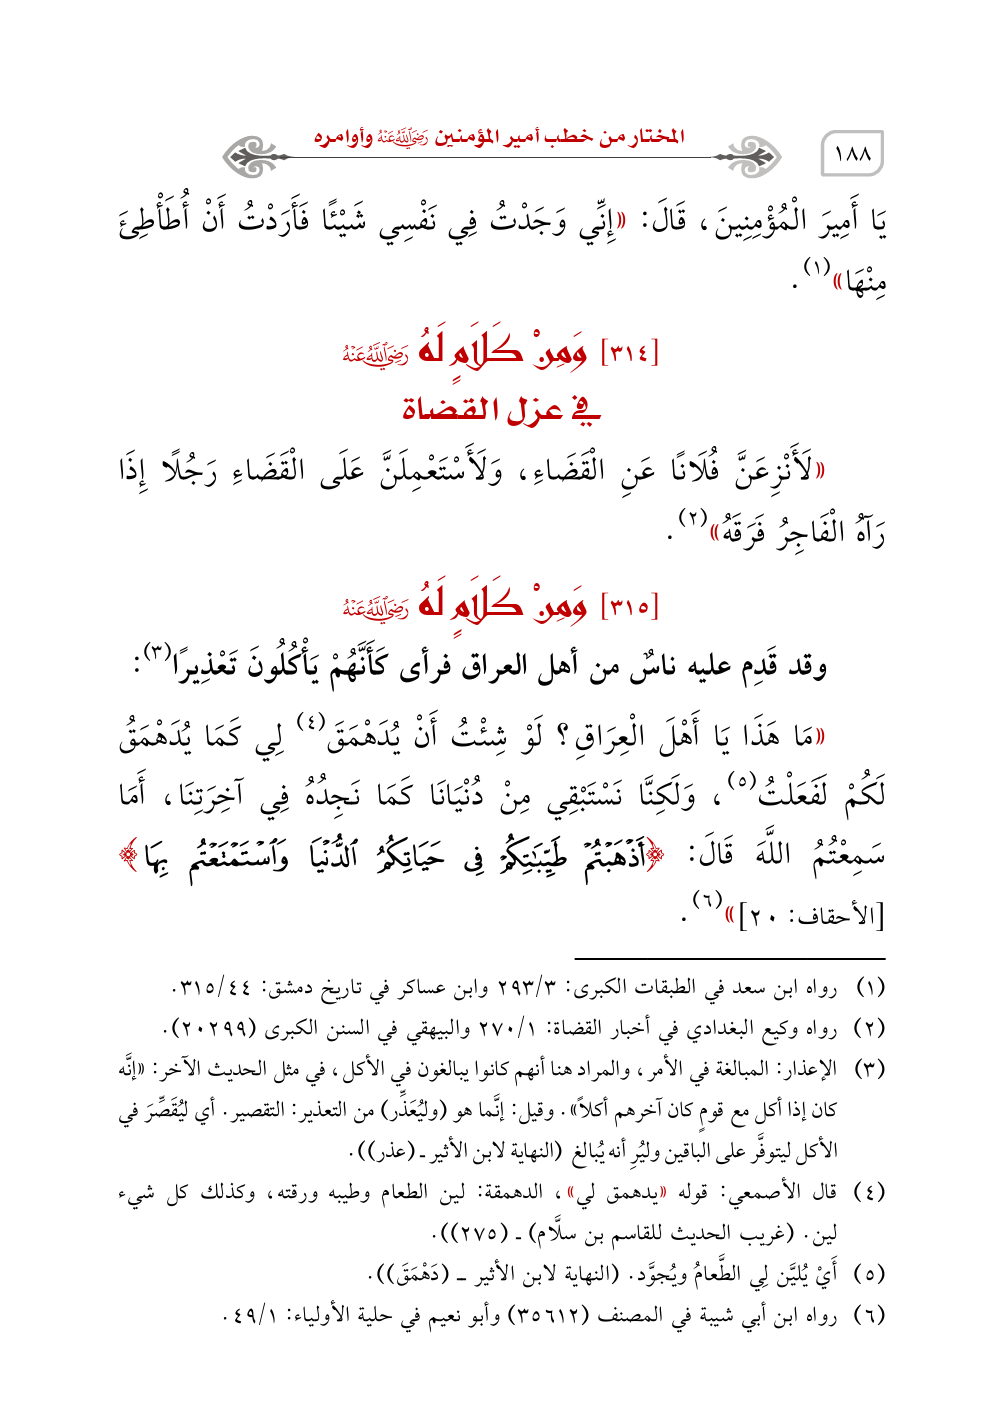 ١٨٨
المختار من خطب أمير المؤمنين رَضِيَ اللَّهُ عَنْهُ وأوامره
يَا أَمِيرَ الْمُؤْمِنِينَ، قَالَ: «إِنِّي وَجَدْتُ فِي نَفْسِي شَيْئًا فَأَرَدْتُ أَنْ أُطَأْطِئَ
مِنْهَا»(١).
[٣١٤] وَمِنْ كَلَامٍ لَهُ رَضِيَ اللَّهُ عَنْهُ
في عزل القضاة
«لَأَنْزِعَنَّ فُلَانًا عَنِ الْقَضَاءِ، وَلَأَسْتَعْمِلَنَّ عَلَى الْقَضَاءِ رَجُلًا إِذَا
رَآهُ الْفَاجِرُ فَرَقَهُ»(٢).
[٣١٥] وَمِنْ كَلَامٍ لَهُ رَضِيَ اللَّهُ عَنْهُ
وقد قَدِم عليه ناسٌ من أهل العراق فرأى كَأَنَّهُمْ يَأْكُلُونَ تَعْذِيرًا(٣):
«مَا هَذَا يَا أَهْلَ الْعِرَاقِ؟ لَوْ شِئْتُ أَنْ يُدَهْمَقَ(٤) لِي كَمَا يُدَهْمَقُ
لَكُمْ لَفَعَلْتُ(٥)، وَلَكِنَّا نَسْتَبْقِي مِنْ دُنْيَانَا كَمَا نَجِدُهُ فِي آخِرَتِنَا، أَمَا
سَمِعْتُمُ اللَّهَ قَالَ: ﴿أَذْهَبْتُمْ طَيِّبَٰتِكُمْ فِى حَيَاتِكُمُ ٱلدُّنْيَا وَٱسْتَمْتَعْتُم بِهَا﴾
[الأحقاف: ٢٠]»(٦).
(١) رواه ابن سعد في الطبقات الكبرى: ٢٩٣/٣ وابن عساكر في تاريخ دمشق: ٣١٥/٤٤.
(٢) رواه وكيع البغدادي في أخبار القضاة: ٢٧٠/١ والبيهقي في السنن الكبرى (٢٠٢٩٩).
(٣) الإعذار: المبالغة في الأمر، والمراد هنا أنهم كانوا يبالغون في الأكل، في مثل الحديث الآخر: «إنَّه
كان إذا أكل مع قومٍ كان آخرهم أكلاً». وقيل: إنَّما هو (وليُعَذِّر) من التعذير: التقصير. أي ليُقَصِّرَ في
الأكل ليتوفَّر على الباقين وليُرِ أنه يُبالغ (النهاية لابن الأثير ـ (عذر)).
(٤) قال الأصمعي: قوله «يدهمق لي»، الدهمقة: لين الطعام وطيبه ورقته، وكذلك كل شيء
لين. (غريب الحديث للقاسم بن سلَّام) ـ (٢٧٥)).
(٥) أَيْ يُليَّن لِي الطَّعامُ ويُجوَّد. (النهاية لابن الأثير ـ (دَهْمَقَ)).
(٦) رواه ابن أبي شيبة في المصنف (٣٥٦١٢) وأبو نعيم في حلية الأولياء: ٤٩/١.